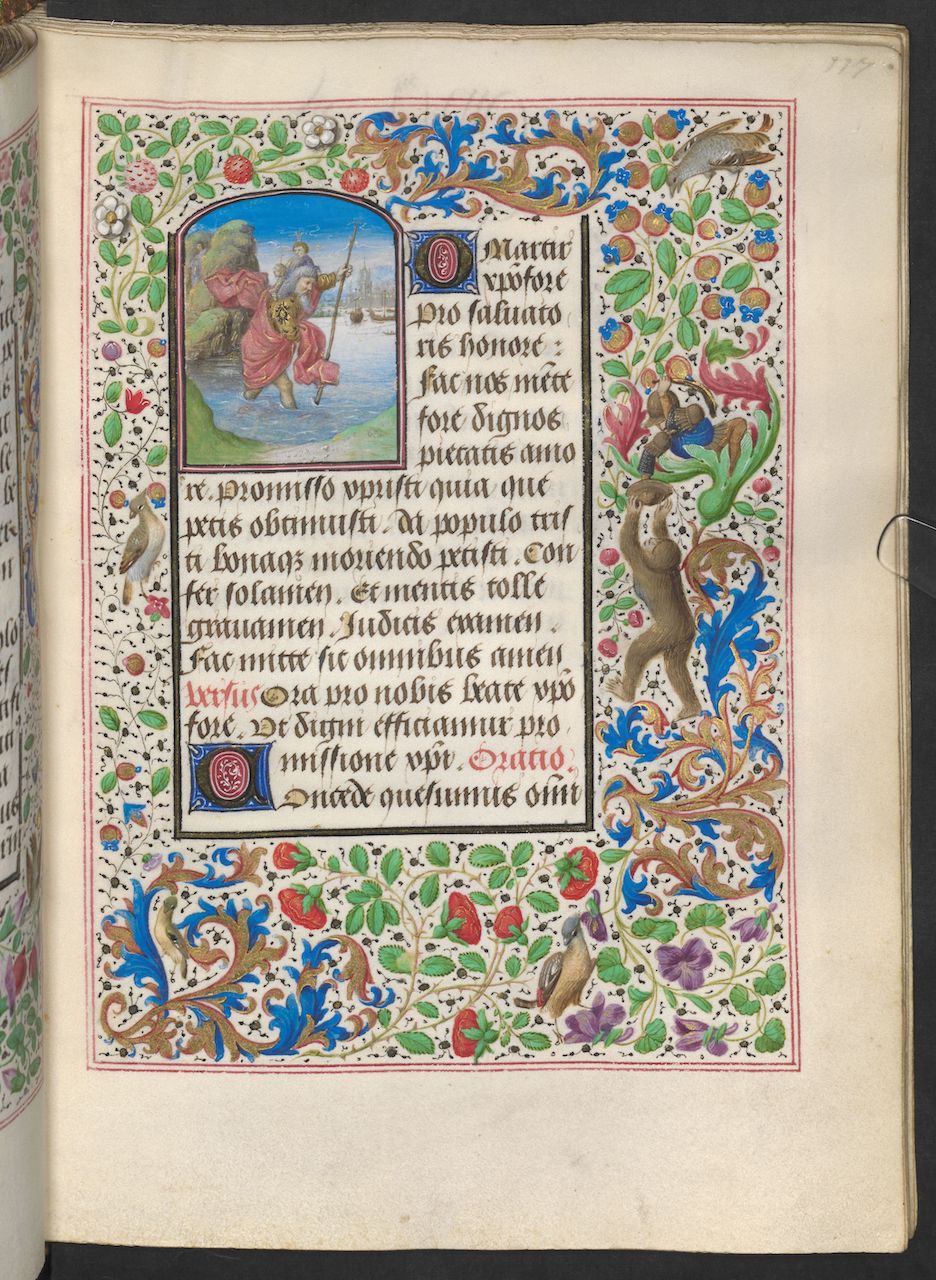 O Martir
xpofore
Pro saluato
ris honore :
Fac nos mete
fore dignos
pietatis amo
re. Promisso xpristi quia que
petis obtinuisti. Da populo tris
ti bonaqz moriendo petisti. Con
fer solamen. Et mentis tolle
grauamen. Iudicis examen.
Fac mitte sit omnibus amen
Versus Ora pro nobis beate xpo
fore. Vt digni efficiamur pro
missione xpi. Oratio.
Oncede quesumus omi